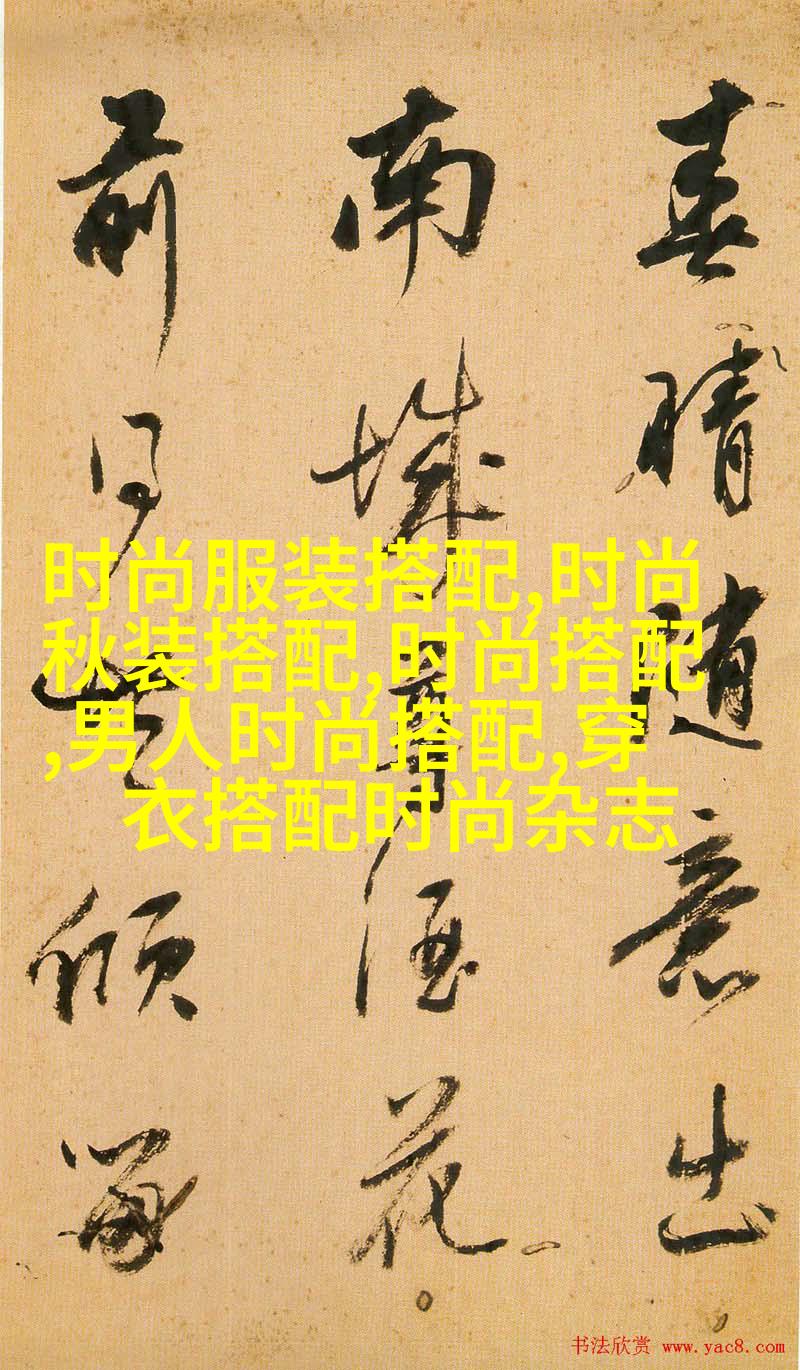 春晴随意出
南城尊酒花
前
时尚服装搭配,时尚
秋装搭配,时尚搭配
,男人时尚搭配,穿
衣搭配时尚杂志
书法欣赏 www.yac8.com